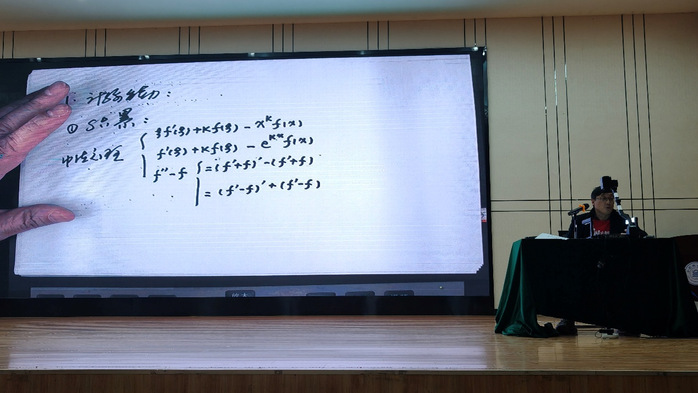 1. 计算能力:
① S点累:
中值定理
ξf'(ξ)+kf(ξ) - x^k f(x)
f'(ξ)+kf(ξ) - e^{kx} f(x)
f''-f = (f'+f)' - (f'+f)
= (f'-f)' + (f'-f)